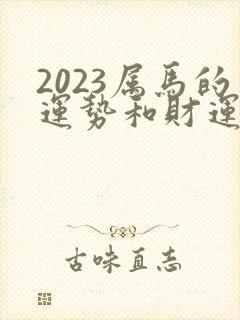 2023属馬的
運勢和財運
古味直志